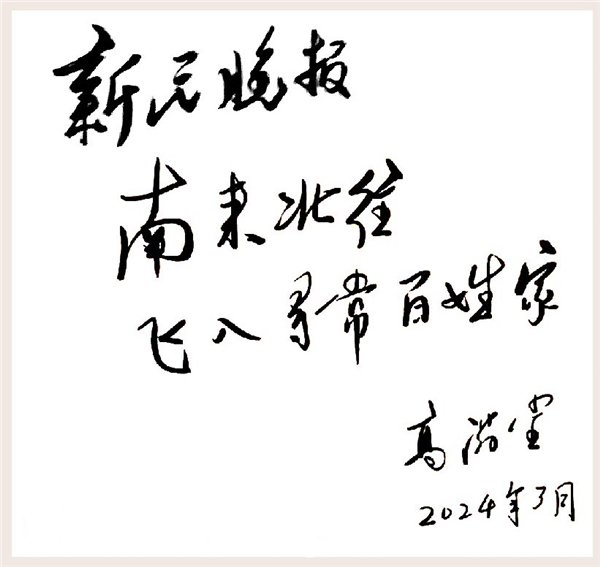 新民晚报
南来北往
飞入寻常百姓家
高
2024年3月